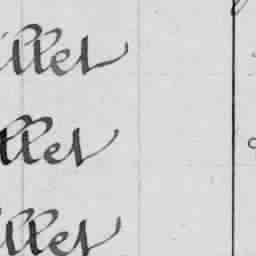 illet
illet
illet